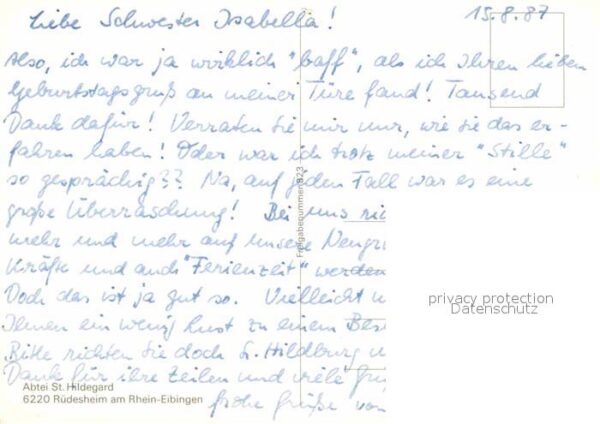 Liebe Schwester Isabella!
15.8.87
Also, ich war ja wirklich "baff", als ich Ihren lieben
Geburtstagsgruß an meiner Türe fand! Tausend
Dank dafür! Verraten Sie mir nur, wie Sie das er-
fahren haben! Oder war ich trotz meiner "Stille"
so gesprächig?? Na, auf jeden Fall war es eine
große Überraschung! Bei uns
mehr und mehr auf unsere
Kräfte und auch "Ferienzeit" werden
Doch das ist ja gut so. Vielleicht
Ihnen ein wenig Lust zu einem
Bitte richten Sie doch S. Hildburg
Dank für ihre Zeilen und viele
frohe Grüße von
Abtei St. Hildegard
6220 Rüdesheim am Rhein-Eibingen
privacy protection
Datenschutz